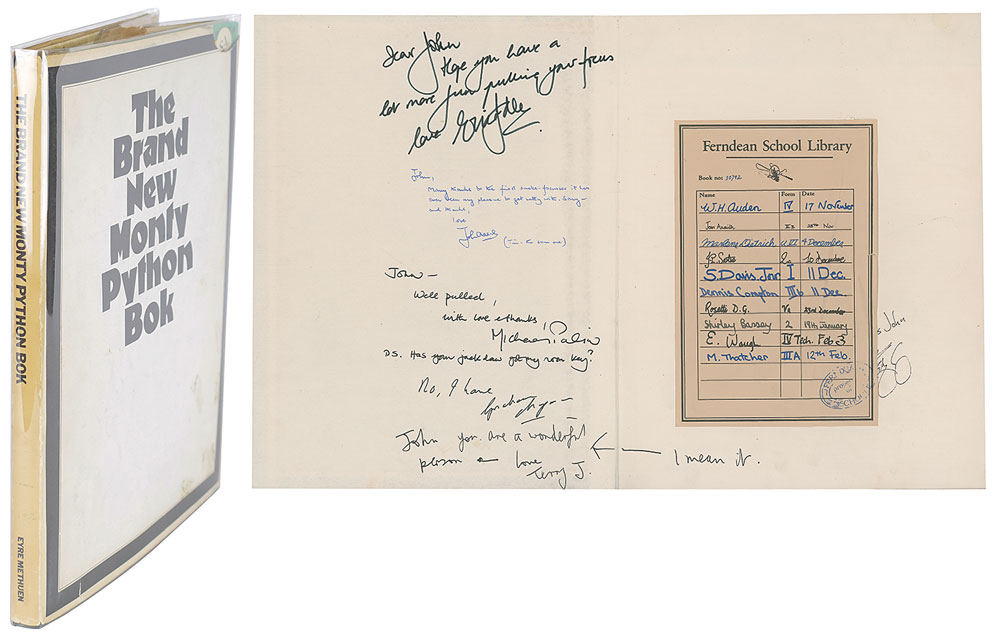 The
Brand
New
Monty
Python
Bok
THE BRAND NEW MONTY PYTHON BOK
EYRE METHUEN
Dear John
Hope you have a
lot more fun pulling your focus
love Eric Idle
John,
Many thanks to the first
ever been my pleasure to get
and thanks,
love
John
John –
Well pulled,
with love & thanks,
Michael Palin
P.S. Has your jackdaw got my room key?
No, I have
Graham
John you are a wonderful
person – love
Terry J.
I mean it.
Ferndean School Library
Book no:
Name Form Date
W.H. Auden IV 17 November
28th Nov
Marlene Dietrich U VI 4 December
10 December
S. Davis Jnr I 11 Dec.
Dennis Compton IIIb 11 Dec.
Rosetti D.G. Va 23rd December
Shirley Bassey 2 19th January
E. Waugh IV Tech. Feb 3
M. Thatcher III A 12th Feb.
John